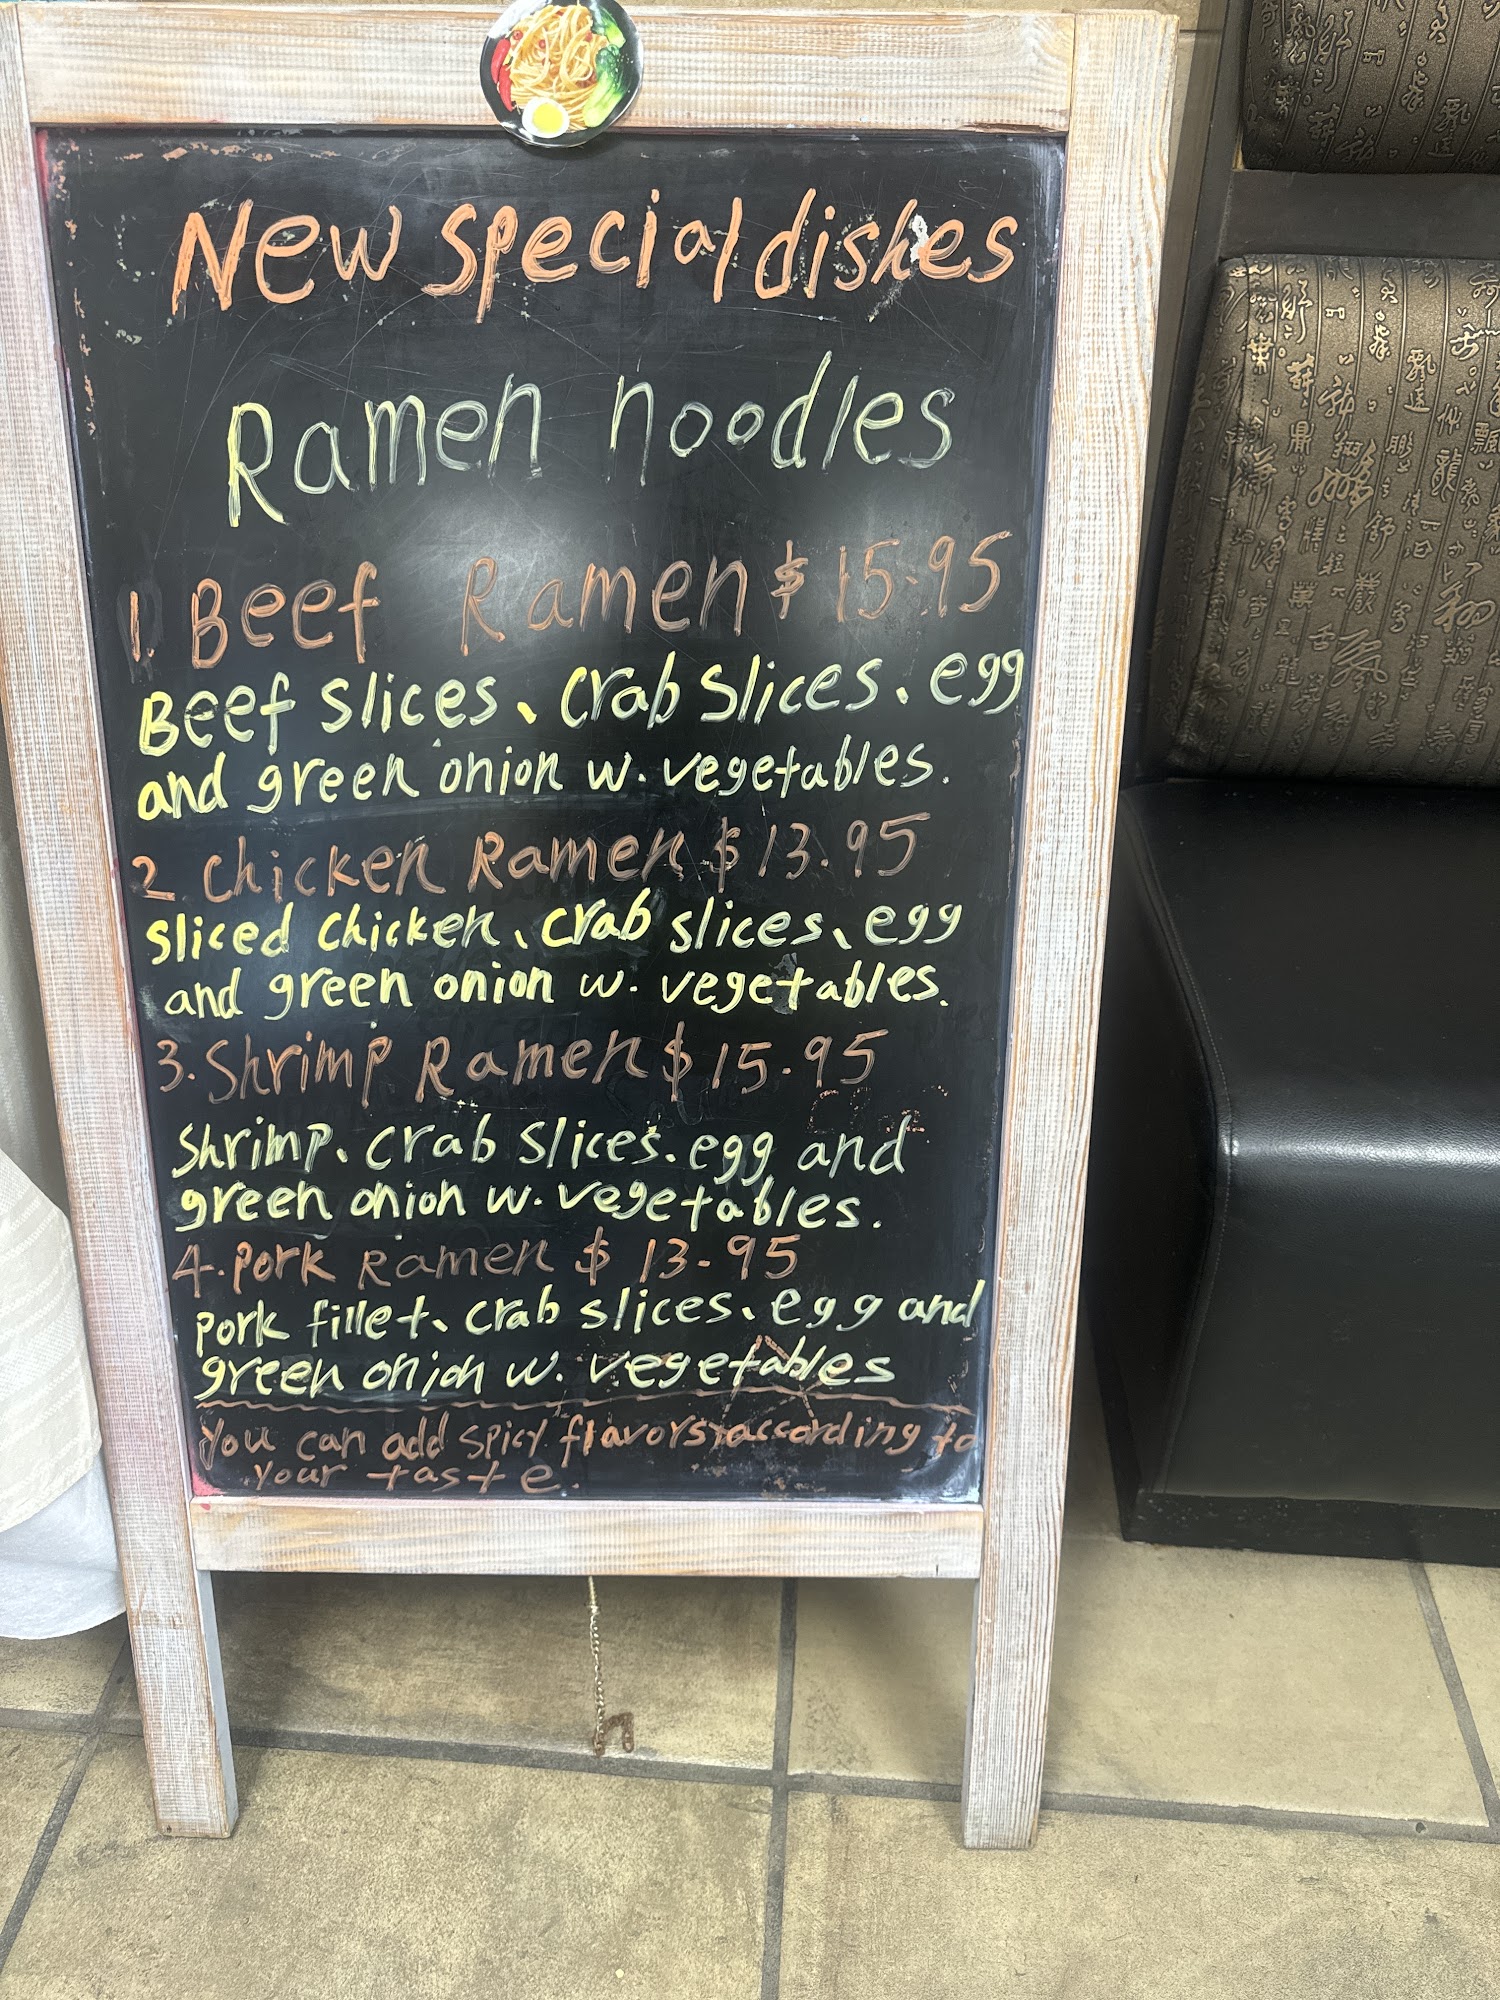 New special dishes
Ramen noodles
1. Beef Ramen $15.95
Beef slices、crab slices、egg
and green onion w. vegetables.
2 chicken Ramen $13.95
sliced chicken、crab slices、egg
and green onion w. vegetables.
3. Shrimp Ramen $15.95
Shrimp、crab slices. egg and
green onion w. vegetables.
4. pork Ramen $13.95
pork fillet、crab slices、egg and
green onion w. vegetables
you can add spicy flavors, according to
your taste.